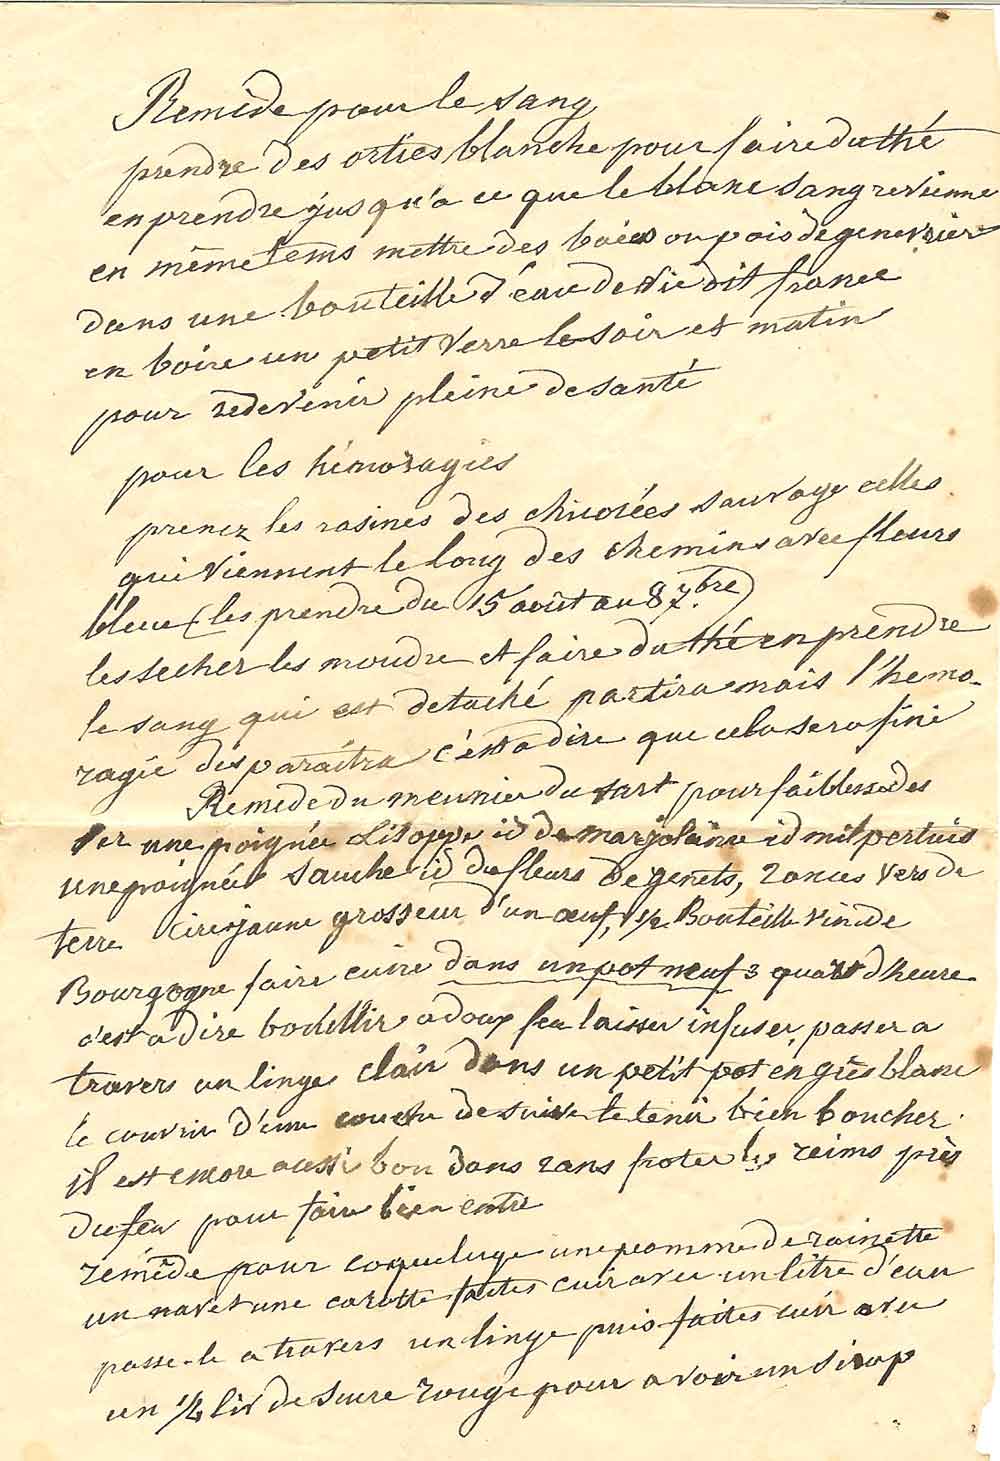 Remède pour le sang
prendre des orties blanche pour faire du thé
en prendre jus qu'a ce que le blanc sang revienne
en même tems mettre des baies ou pois de genevrier
dans une bouteille d'eau de vie dit france
en boire un petit verre le soir et matin
pour redevenir pleine de santé
pour les hémoragies
prenez les rasines des chicorées sauvage celles
qui viennent le long des chemins avec fleurs
bleue (les prendre du 15 août au 8 7.bre)
les secher les moudre et faire du thé en prendre
le sang qui est detaché partira mais l'hemo-
ragie disparaitra c'est a dire que cela sera fini
Remede du meunier du sart pour faiblesse des
une poignée id de marjolaine id milpertuis
une poignée id de fleurs de genets, 2 onces vers de
terre cire jaune grosseur d'un œuf, 1/2 Bouteille vin de
Bourgogne faire cuire dans un pot neuf 3 quart d'heure
c'est a dire boullir a doux feu laisser infuser, passer a
travers un linge clair dans un petit pot en grès blanc
le couvrir d'une couche de suive le tenir bien boucher
il est encore aussi bon dans 2 ans froter les reims près
du feu pour faire bien entré
remêde pour coqueluge une pomme de rainette
un navet une carotte faites cuir avec un litre d'eau
passe-le a travers un linge puis faites cuir avec
un 1/2 liv de sucre rouge pour avoir un sirop